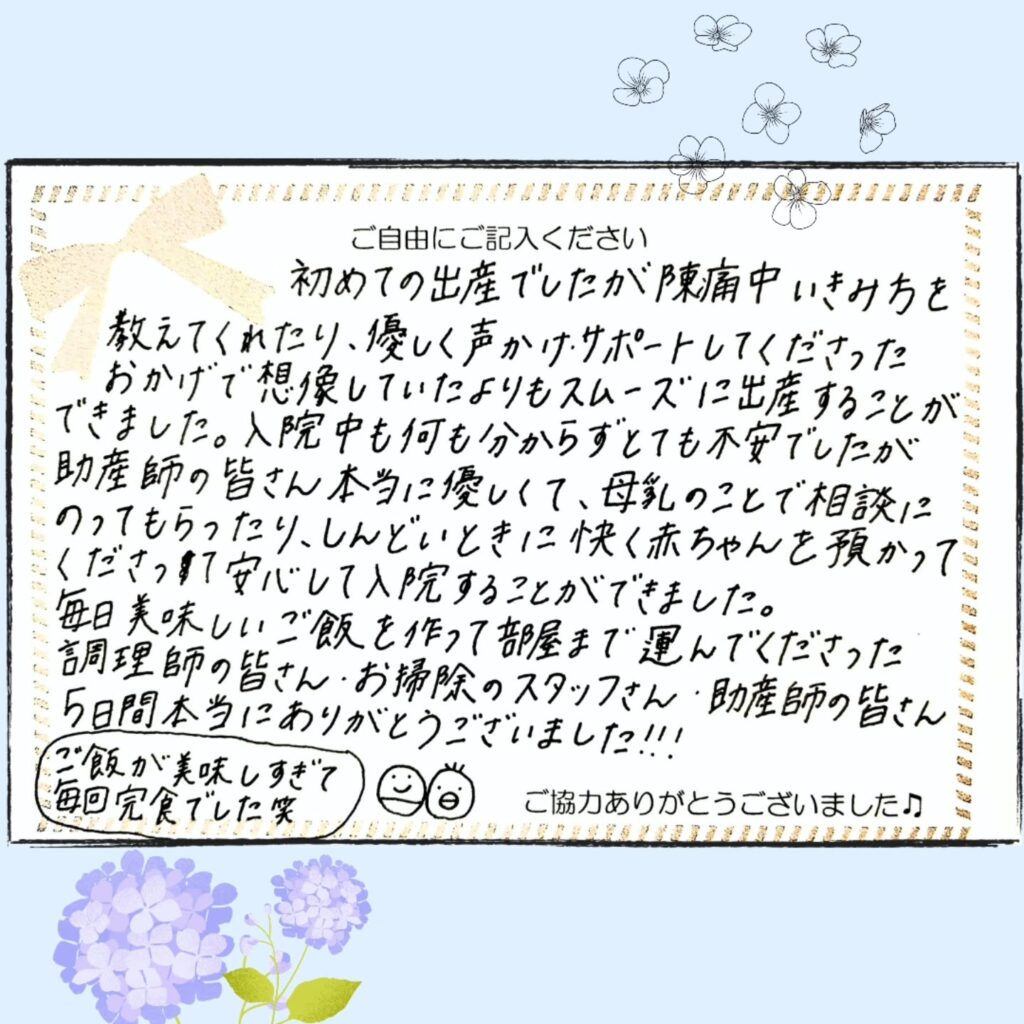 ご自由にご記入ください
初めての出産でしたが陣痛中いきみ方を
教えてくれたり、優しく声かけ・サポートしてくださった
おかげで想像していたよりもスムーズに出産することが
できました。入院中も何も分からずとても不安でしたが
助産師の皆さん本当に優しくて、母乳のことで相談に
のってもらったり、しんどいときに快く赤ちゃんを預かって
くださって安心して入院することができました。
毎日美味しいご飯を作って部屋まで運んでくださった
調理師の皆さん・お掃除のスタッフさん・助産師の皆さん
5日間本当にありがとうございました!!!
ご飯が美味しすぎて
毎回完食でした笑
ご協力ありがとうございました♫